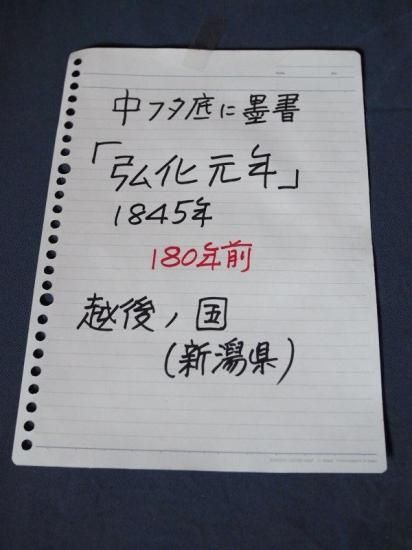 中フタ底に墨書
「弘化元年」
1845年
180年前
越後ノ国
(新潟県)